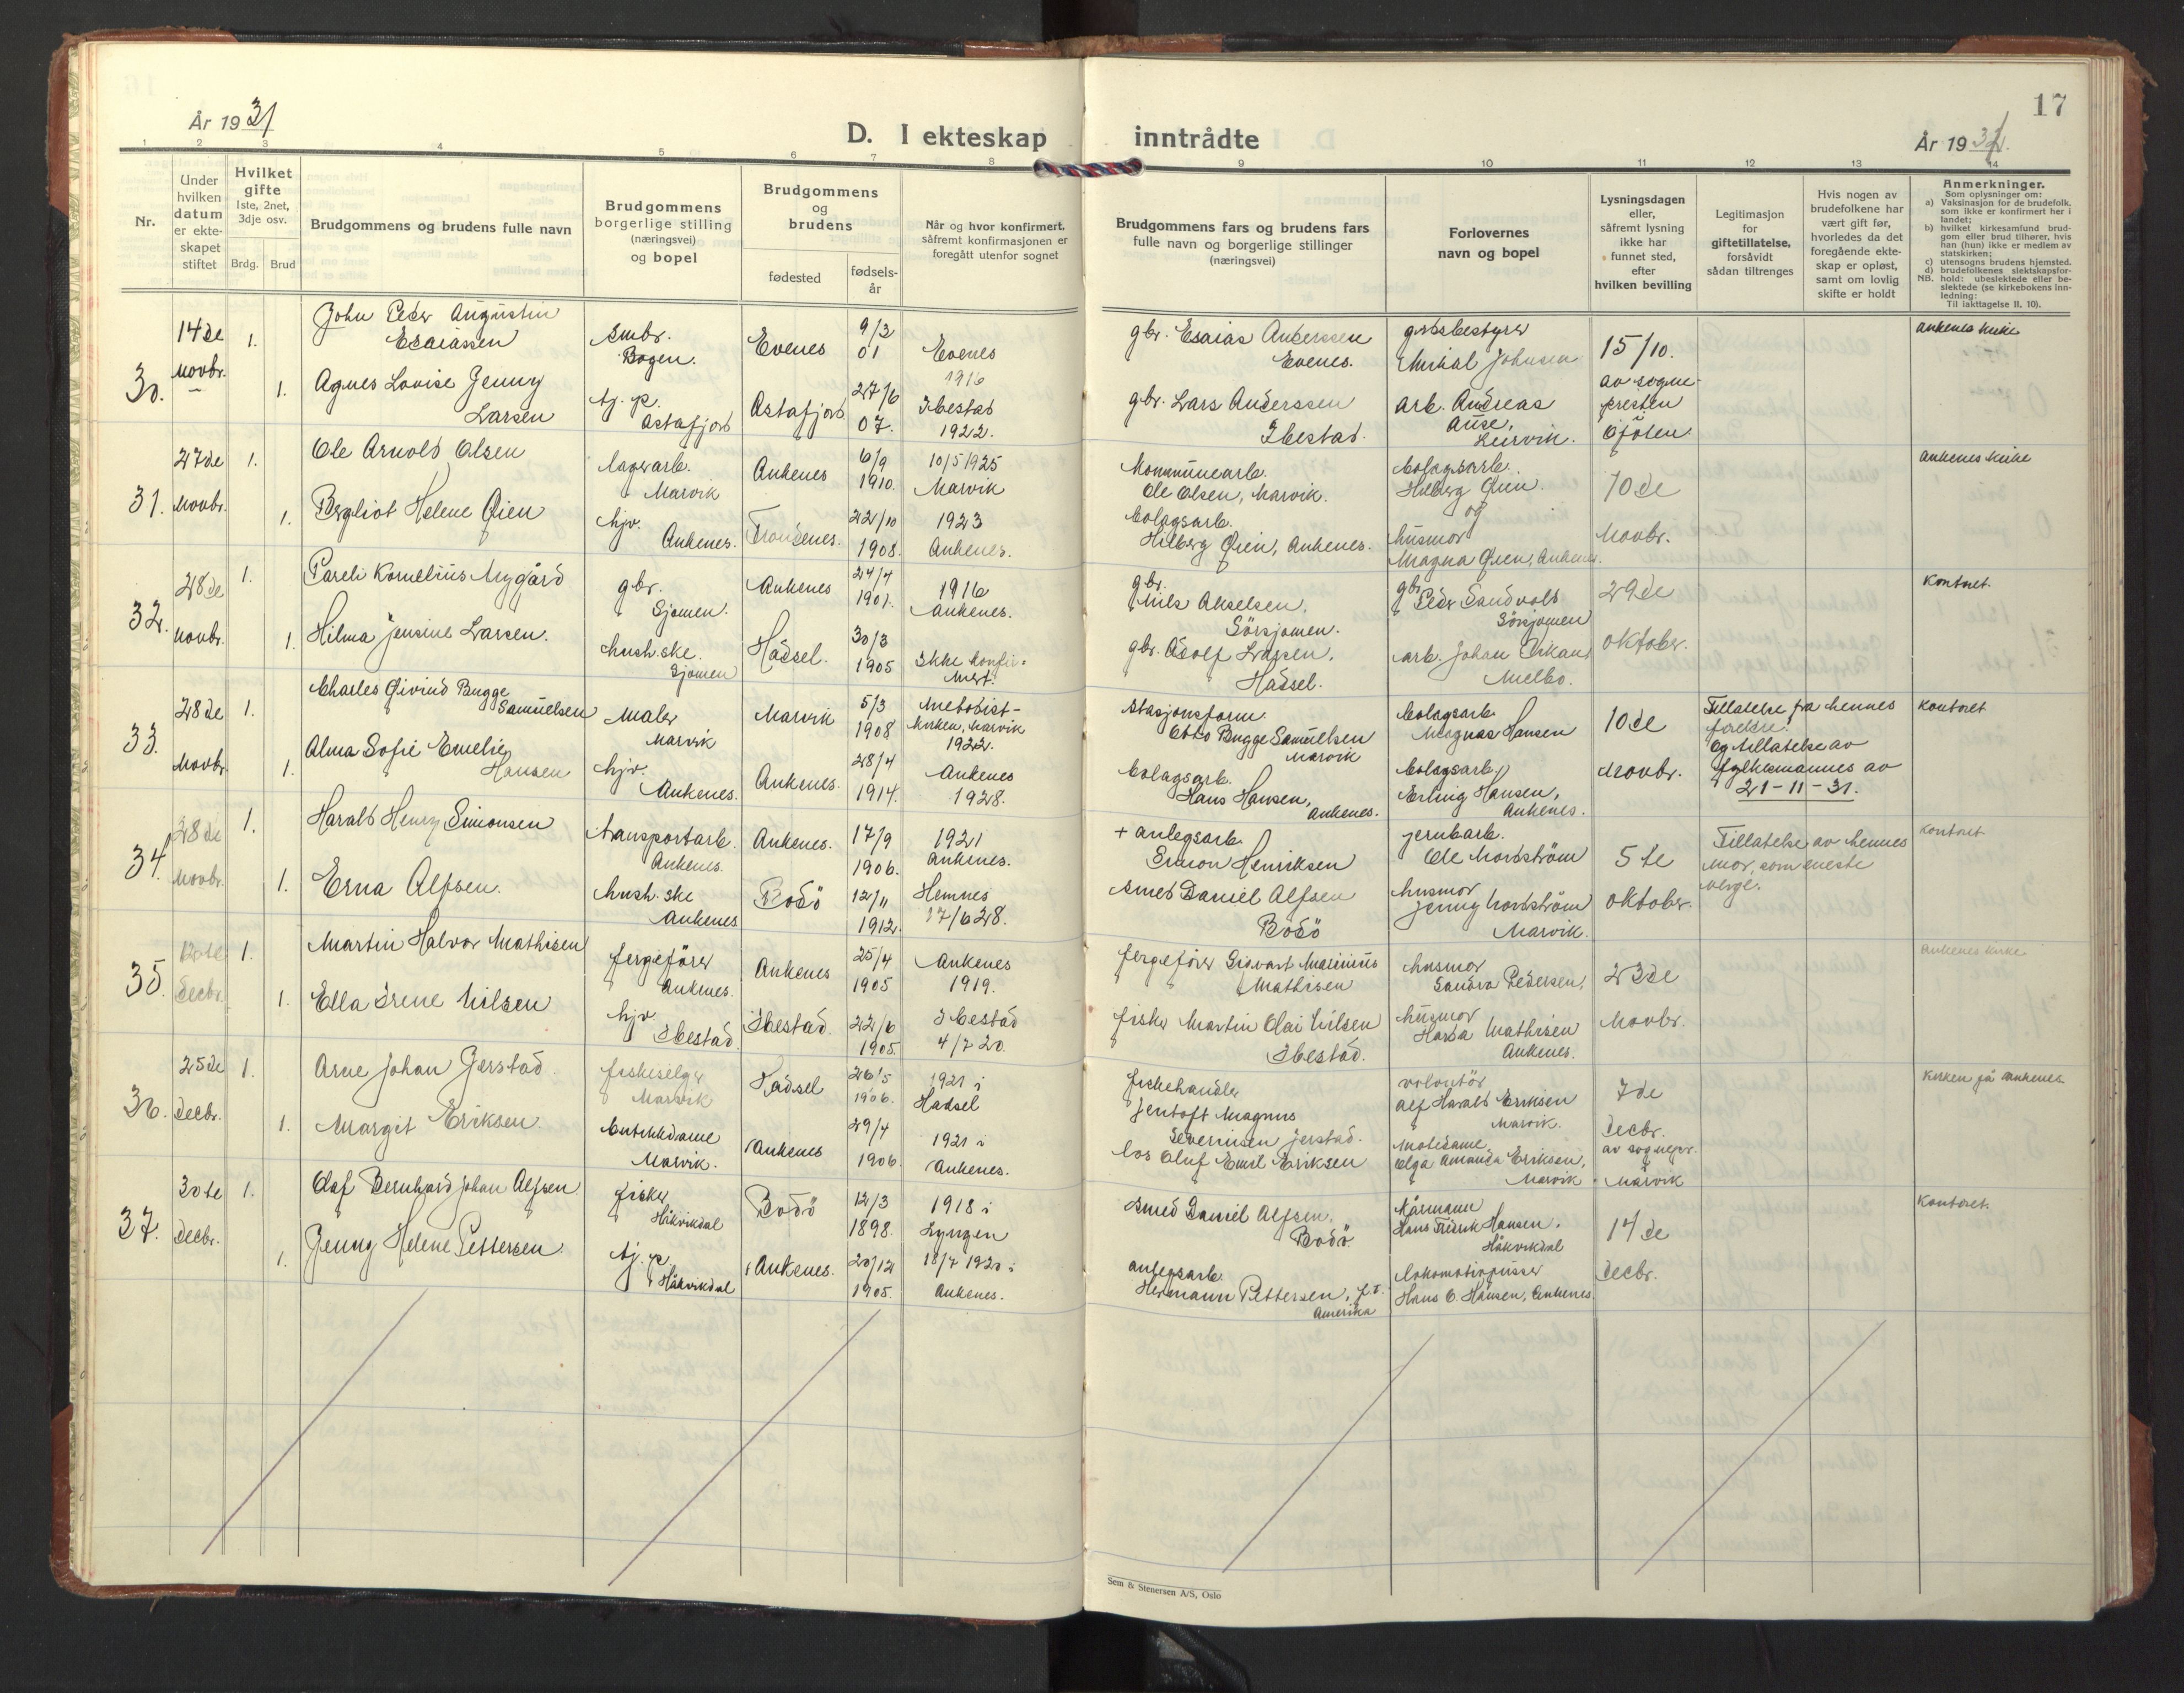 17
År 1931
D. I ekteskap inntrådte
År 1931.
1 2 3 4 5 6 7 8 9 10 11 12 13 14
Nr.
Under hvilken datum er ekteskapet stiftet
Hvilket gifte
1ste, 2net, 3dje osv.
Brdg. Brud
Brudgommens og brudens fulle navn
Brudgommens borgerlige stilling (næringsvei) og bopel
Brudgommens og brudens
fødested
fødselsår
Når og hvor konfirmert,
såfremt konfirmasjonen er
foregått utenfor sognet
Brudgommens fars og brudens fars
fulle navn og borgerlige stillinger
(næringsvei)
Forlovernes
navn og bopel
Lysningsdagen
eller,
såfremt lysning
ikke har
funnet sted,
efter
hvilken bevilling
Legitimasjon
for
giftetillatelse,
forsåvidt
sådan tiltrenges
Hvis nogen av
brudefolkene har
vært gift før,
hvorledes da det
foregående ekte-
skap er opløst,
samt om lovlig
skifte er holdt
Anmerkninger.
Som oplysninger om:
a) Vaksinasjon for de brudefolk,
som ikke er konfirmert her i
landet;
b) hvilket kirkesamfund brud-
gom eller brud tilhører, hvis
han (hun) ikke er medlem av
statskirken;
c) utensogns brudens hjemsted.
d) brudefolkenes slektskapsfor-
NB. hold: ubeslektede eller be-
slektede (se kirkebokens inn-
ledning:
Til iakttagelse II, 10).
30. 14de Novbr. 1. John Peder Augustin
Esaiassen
smbr.
Bogen.
Evenes 9/3 01 Evenes 1916
gbr. Esaias Anderssen
Evenes.
gårdsbestyrer
Mikal Johnsen
15/10.
av sogne-
presten
Ofoten
Ankenes kirke
1. Agnes Lovise Jenny
Larsen
tj. p.
Astafjord
Astafjord 27/6 07. Ibestad 1922.
gbr. Lars Anderssen
Ibestad.
arb. Andreas
Aune,
Leirvik.
31. 27de Novbr. 1. Ole Arnold Olsen
lagerarb.
Narvik
Ankenes 6/9 1910. 10/5 1925 Narvik
Kommunearb.
Ole Olsen, Narvik.
bolagsarb.
Hilberg Øien.
og
10de
Novbr.
Ankenes kirke
1. Bergliot Helene Øien
hjv.
Ankenes.
Trondenes. 22/10 1908. 1923 Ankenes.
bolagsarb.
Hilberg Øien, Ankenes.
husmor
Magna Øien, Ankenes.
32. 28de Novbr. 1. Pareli Kornelius Nygård
gbr.
Sjomen.
Ankenes 24/4 1901. 1916 Ankenes.
gbr.
Nils Akselsen,
Sörsjomen.
gbr.
Peder Sandvold
Sörsjomen
29de
oktober.
Kontoret.
1. Hilma Jensine Larsen.
hush.ske.
Sjomen
Hadsel. 30/3 1905 Ikke konfir-
mert.
gbr. Adolf Larsen,
Hadsel.
arb. Johan
Melbo.
33. 28de Novbr. 1. Charles Øivind Bugge
Samuelsen
Maler
Narvik
Narvik 5/3 1908 Metodist-
kirken, Narvik
1922.
Stasjonsform.
Otto Bugge Samuelsen
Narvik
bolagsarb.
Magnus Hansen
10de
Novbr.
Tillatelse fra hennes
foreldre.
Og tillatelse av
fylkesmannes av
21-11-31.
Kontoret
1. Alma Sofie Emelie
Hansen
hjv.
Ankenes.
Ankenes. 28/4 1914. Ankenes 1928.
bolagsarb.
Hans Hansen,
Ankenes.
bolagsarb.
Erling Hansen,
Ankenes.
34. 28de Novbr. 1. Harald Henry Simonsen
transportarb.
Ankenes.
Ankenes. 17/9 1906. 1921 Ankenes.
+ anlegsarb.
Simon Henriksen
jernbarb.
Ole Nordström
5te
oktober.
Tillatelse av hennes
mor, som eneste
verge.
Kontoret
1. Erna Alfsen.
hush.ske
Ankenes
Bodö 12/11 1912. Hemnes 17/6 28.
Smed Daniel Alfsen
Bodö
husmor
Jenny Nordström
Narvik.
35. Decbr. 1. Martin Halvor Mathisen
fergeförer
Ankenes.
Ankenes 25/4 1905 Ankenes 1919.
fergeförer Sigvart Marinius
Mathisen
husmor
Sandra Pedersen,
23de
Novbr.
Ankenes kirke
1. Ella Irene Nilsen
hjv.
Ibestad.
Ibestad. 22/6 1905. Ibestad 4/7 20.
fisker Martin Olai Nilsen
Ibestad.
husmor
Harda Mathisen
Ankenes.
36. 25de Decbr. 1. Arne Johan Jerstad.
fiskeselger
Narvik
Hadsel 26/5 1906. 1921 i Hadsel
fiskehandler
Jentoft Magnus
Severinsen Jerstad.
volontör
Alf Harald Eriksen
Narvik.
7de
Decbr.
av sognepr.
Narvik
Kirken på Ankenes.
1. Margit Eriksen.
butikkdame
Narvik.
Ankenes 29/4 1906. 1921 i Ankenes.
los Oluf Emil Eriksen
Motedame
Olga Amanda Eriksen,
Narvik
37. 30te Decbr. 1. Olaf Bernhard Johan Alfsen
fisker
Håkvikdal
Bodö 12/3 1898. 1918 i Lyngen
Smed Daniel Alfsen.
Bodö.
Kårmann
Hans Fredrik Hansen.
Håkvikdal
14de
decbr.
Kontoret.
1. Jenny Helene Pettersen.
tj. p.
Håkvikdal
Ankenes. 20/12 1905. 18/7 1920 i Ankenes.
anlegsarb.
Hermann Pettersen, f.t.
Amerika
lokomotivpusser
Hans C. Hansen, Ankenes
Sem & Stenersen A/S, Oslo